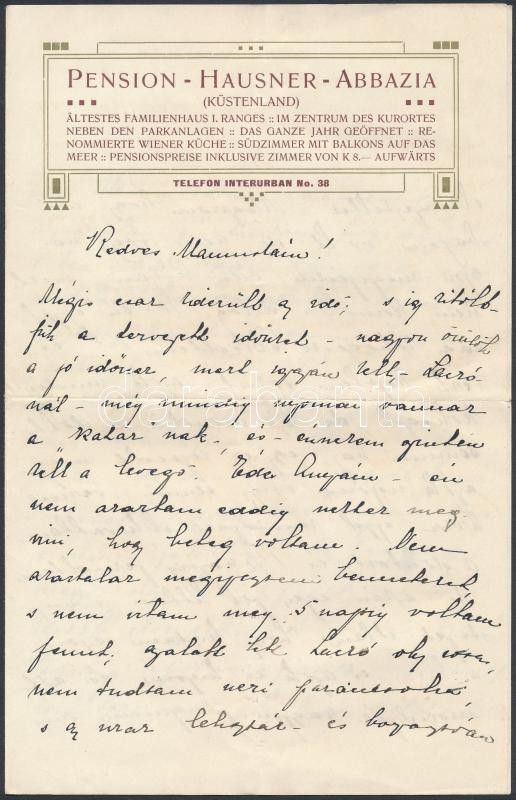 PENSION - HAUSNER - ABBAZIA
(KÜSTENLAND)
ÄLTESTES FAMILIENHAUS I. RANGES :: IM ZENTRUM DES KURORTES
NEBEN DEN PARKANLAGEN :: DAS GANZE JAHR GEÖFFNET :: RE-
NOMMIERTE WIENER KÜCHE :: SÜDZIMMER MIT BALKONS AUF DAS
MEER :: PENSIONSPREISE INKLUSIVE ZIMMER VON K 8.— AUFWÄRTS
TELEFON INTERURBAN No. 38
Kedves Mamuskám!
Mégis csak kiderült az idő, s így kitölt-
jük a tervezett időnket - nagyon örülök
a jó időnek, mert igazán kell - Laczó-
nál - még mindig nyomai vannak
a "katar"nak - és énnekem szintén
kell a levegő. Édes Anyám - én
nem akartam eddig nektek meg
írni, hogy beteg voltam. Nem
akartalak megijeszteni benneteket
s nem írtam meg. 5 napig voltam
fennt, azalatt Laczó oly
nem tudtam neki parancsolni,
s az láz - és